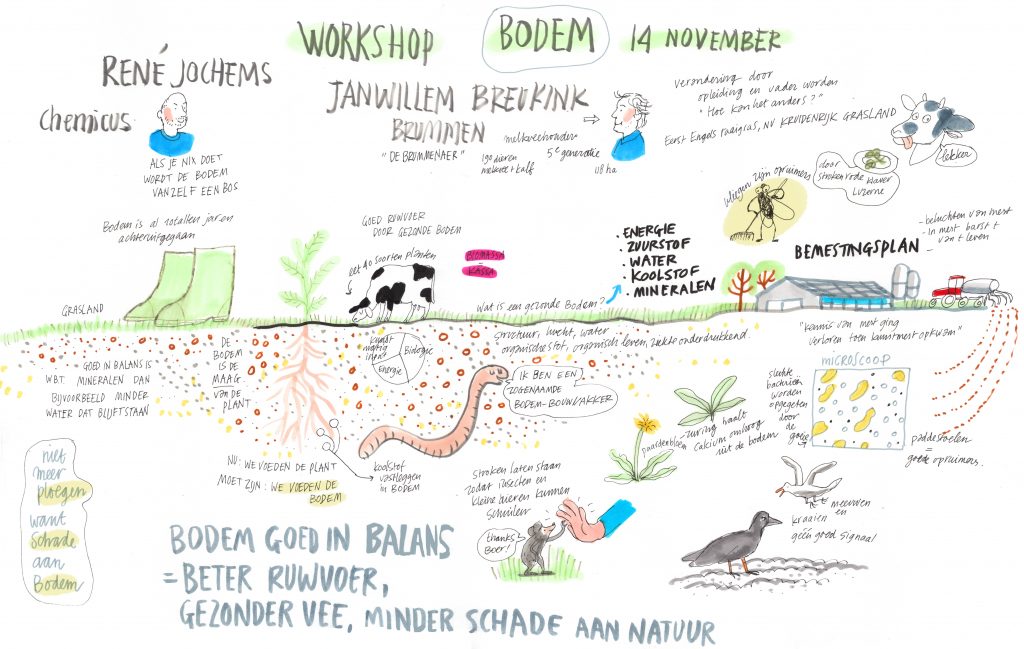 WORKSHOP BODEM 14 NOVEMBER
RENÉ JOCHEMS
Chemicus
ALS JE NIX DOET
WORDT DE BODEM
VANZELF EEN BOS
JANWILLEM BREUKINK
BRUMMEN
"DE BRUMMENAER"
melkveehouder
190 dieren
melkvee + kalf
5e generatie
118 ha
Verandering door
opleiding en vader worden
"Hoe kan het anders?"
Eerst Engels raaigras, NU KRUIDENRIJK GRASLAND
lekker
door
strokenrode klaver
Luzerne
vliegen zijn opruimers
Bodem is al totallen jaren
achteruitgegaan
GOED RUWVOER
DOOR GEZONDE BODEM
eet 40 soorten planten
BIOMASSA
=
KASSA
. ENERGIE
. ZUURSTOF
. WATER
. KOOLSTOF
. MINERALEN
Wat is een gezonde Bodem?
BEMESTINGSPLAN
- beluchten van mest
- in mest barst t
van t leven
-
GRASLAND
GOED IN BALANS IS
WBT. MINERALEN DAN
BIJVOORBEELD MINDER
WATER DAT BLIJFT STAAN
DE
BODEM
IS DE
MAAG
van de
PLANT
Biologie
Energie
structuur, lucht, water
organische stof, organisch leven, ziekte onderdrukkend.
"kennis van mest ging
verloren toen kunstmest opkwam"
IK BEN EEN
ZOGENAAMDE
BODEM-BOUWVAKKER
MICROSCOOP
slechte
bacteriën
worden
opgegeten
door
de
goeie
paddestoelen
=
goede opruimers.
paardenbloem
zuring haalt
calcium omhoog
uit de bodem
NU: WE VOEDEN DE PLANT
MOET ZIJN: WE VOEDEN DE
BODEM
koolstof
vastleggen
in BODEM
Stroken laten staan
zodat insecten en
kleine dieren kunnen
schuilen
thanks
Boer!
meeuwen
en
kraaien
géén goed signaal
niet
meer
ploegen
want
schade
aan
Bodem
BODEM GOED IN BALANS
= BETER RUWVOER,
GEZONDER VEE, MINDER SCHADE AAN NATUUR